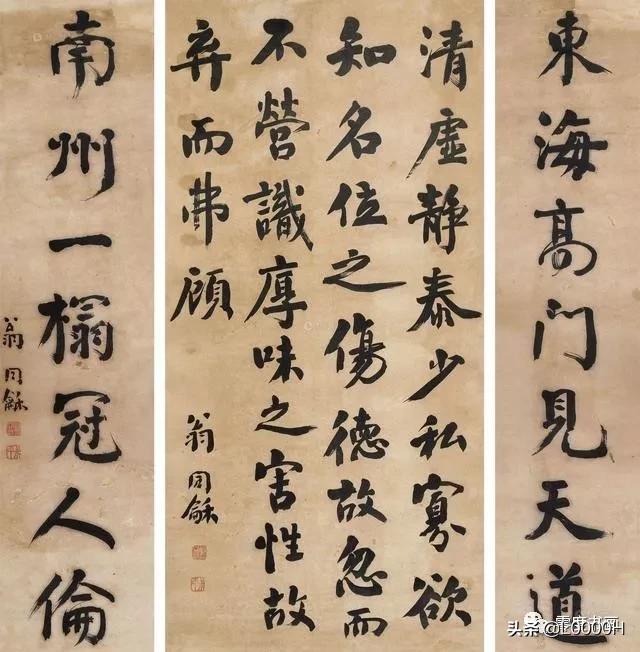 東海髙門見天道
清虛静泰少私寡欲
知名位之傷德故忽而
不營識厚味之害性故
弃而弗顧
翁同龢
南州一榻冠人倫
翁同龢
头条@L0000H